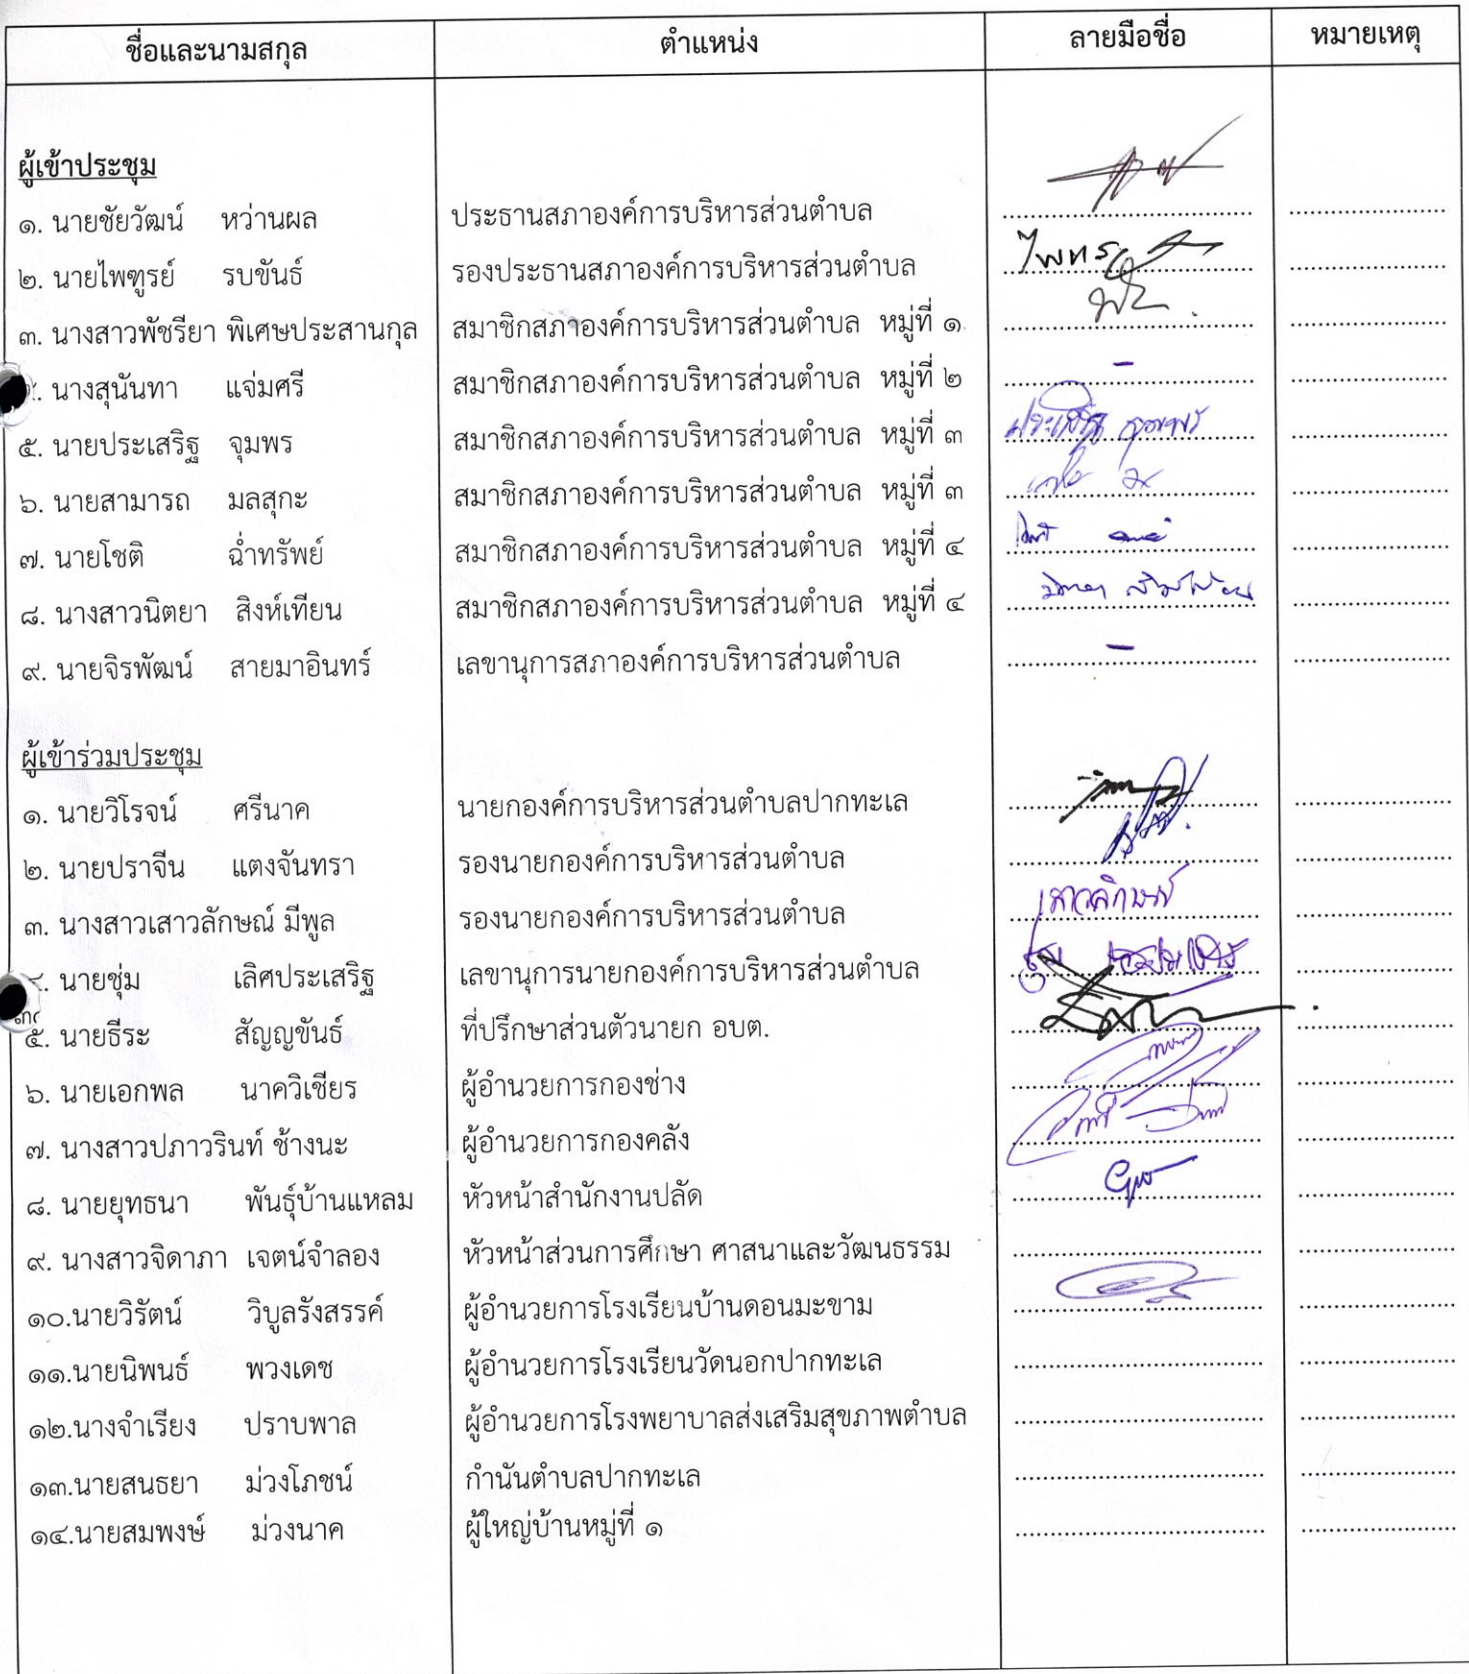 ชื่อและนามสกุล ตำแหน่ง ลายมือชื่อ หมายเหตุ
ผู้เข้าประชุม
๑. นายชัยวัฒน์ หว่านผล ประธานสภาองค์การบริหารส่วนตำบล
๒. นายไพฑูรย์ รบขันธ์ รองประธานสภาองค์การบริหารส่วนตำบล
๓. นางสาวพัชรียา พิเศษประสานกุล สมาชิกสภาองค์การบริหารส่วนตำบล หมู่ที่ ๑
นางสุนันทา แจ่มศรี สมาชิกสภาองค์การบริหารส่วนตำบล หมู่ที่ ๒ -
๕. นายประเสริฐ จุมพร สมาชิกสภาองค์การบริหารส่วนตำบล หมู่ที่ ๓ ประเสริฐ จุมพร
๖. นายสามารถ มลสุกะ สมาชิกสภาองค์การบริหารส่วนตำบล หมู่ที่ ๓
๗. นายโชติ ฉ่ำทรัพย์ สมาชิกสภาองค์การบริหารส่วนตำบล หมู่ที่ ๔
๘. นางสาวนิตยา สิงห์เทียน สมาชิกสภาองค์การบริหารส่วนตำบล หมู่ที่ ๔ นิตยา สิงห์เทียน
๙. นายจิรพัฒน์ สายมาอินทร์ เลขานุการสภาองค์การบริหารส่วนตำบล -
ผู้เข้าร่วมประชุม
๑. นายวิโรจน์ ศรีนาค นายกองค์การบริหารส่วนตำบลปากทะเล
๒. นายปราจีน แตงจันทรา รองนายกองค์การบริหารส่วนตำบล
๓. นางสาวเสาวลักษณ์ มีพูล รองนายกองค์การบริหารส่วนตำบล เสาวลักษณ์
นายชุ่ม เลิศประเสริฐ เลขานุการนายกองค์การบริหารส่วนตำบล
๕. นายธีระ สัญญขันธ์ ที่ปรึกษาส่วนตัวนายก อบต.
๖. นายเอกพล นาควิเชียร ผู้อำนวยการกองช่าง
๗. นางสาวปภาวรินท์ ช้างนะ ผู้อำนวยการกองคลัง
๘. นายยุทธนา พันธุ์บ้านแหลม หัวหน้าสำนักงานปลัด
๙. นางสาวจิดาภา เจตน์จำลอง หัวหน้าส่วนการศึกษา ศาสนาและวัฒนธรรม
๑๐.นายวิรัตน์ วิบูลรังสรรค์ ผู้อำนวยการโรงเรียนบ้านดอนมะขาม
๑๑.นายนิพนธ์ พวงเดช ผู้อำนวยการโรงเรียนวัดนอกปากทะเล
๑๒.นางจำเรียง ปราบพาล ผู้อำนวยการโรงพยาบาลส่งเสริมสุขภาพตำบล
๑๓.นายสนธยา ม่วงโภชน์ กำนันตำบลปากทะเล
๑๔.นายสมพงษ์ ม่วงนาค ผู้ใหญ่บ้านหมู่ที่ ๑